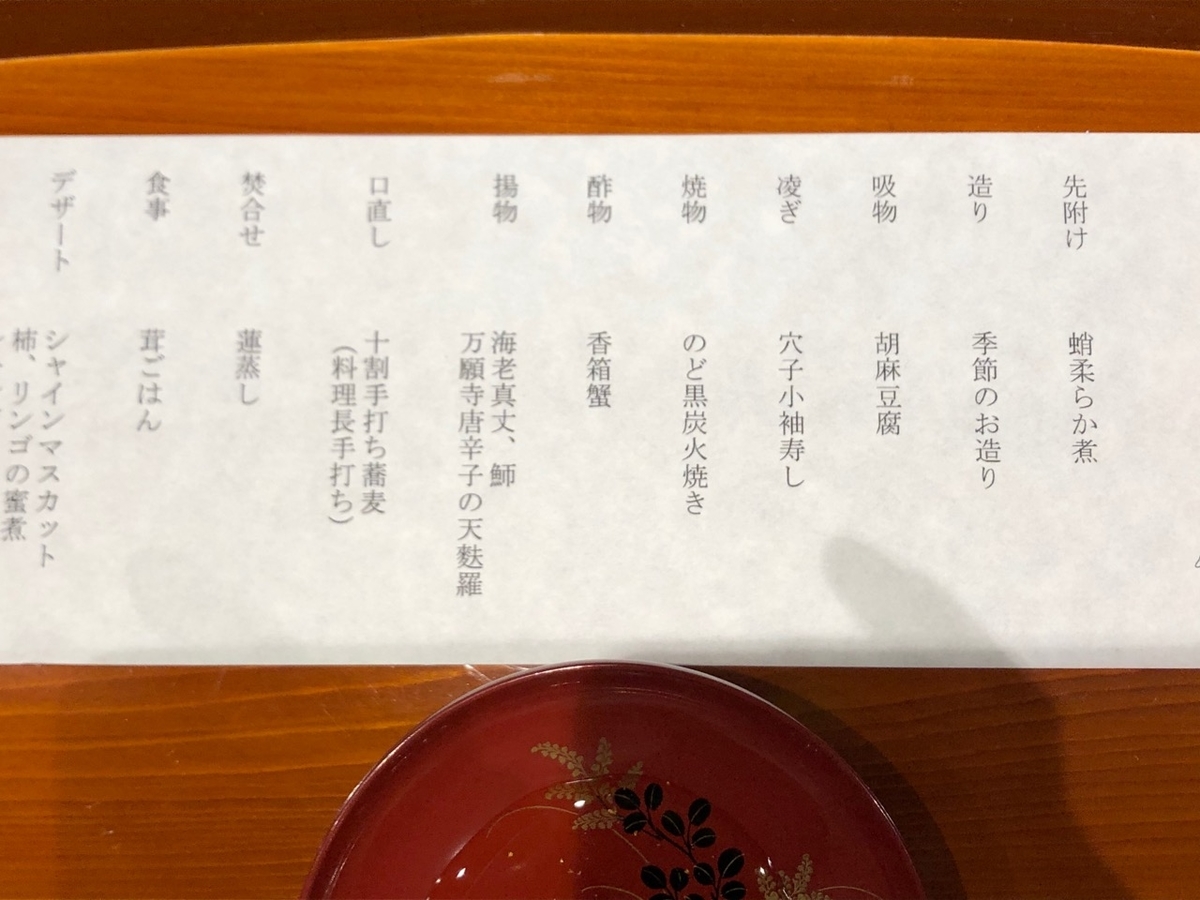 先附け 蛸柔らか煮
造り 季節のお造り
吸物 胡麻豆腐
凌ぎ 穴子小袖寿し
焼物 のど黒炭火焼き
酢物 香箱蟹
揚物 海老真丈、鰤
万願寺唐辛子の天麩羅
口直し 十割手打ち蕎麦
（料理長手打ち）
焚合せ 蓮蒸し
食事 茸ごはん
デザート シャインマスカット
柿、リンゴの蜜煮